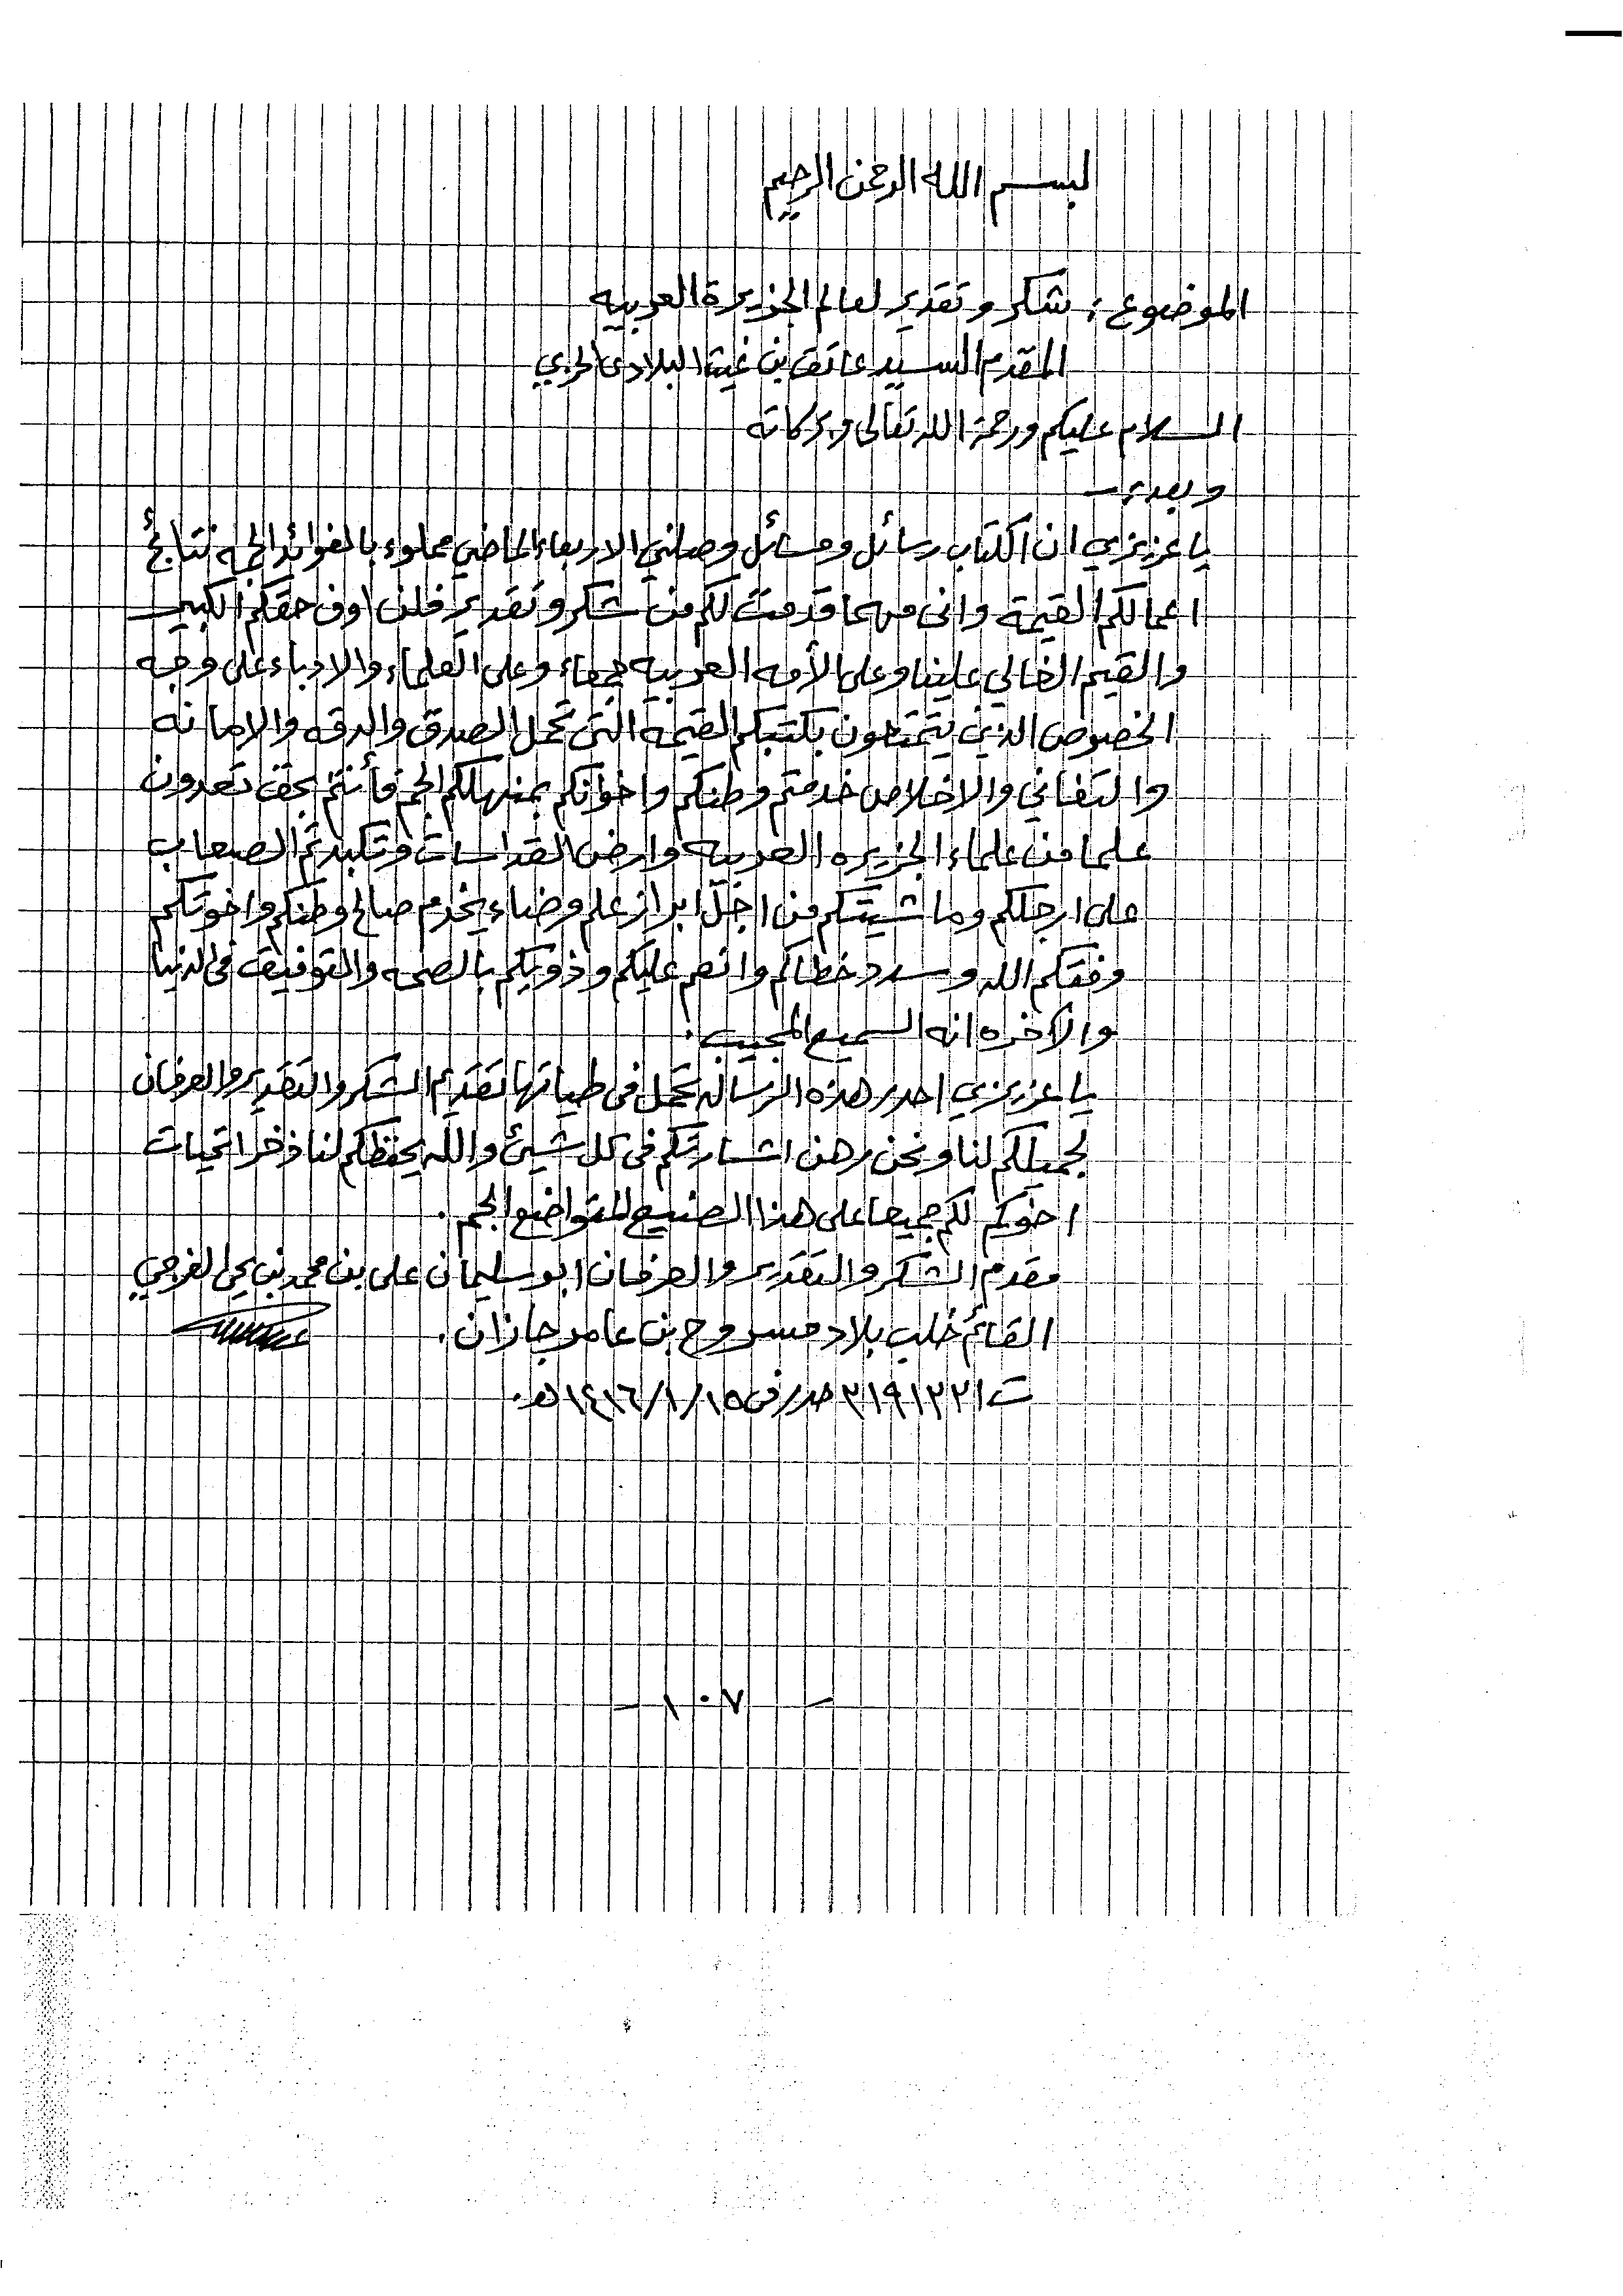 بسم الله الرحمن الرحيم
الموضوع : شكر وتقدير لعالم الجزيرة العربيه
المقدم السيد عاتق بن غيث البلادي الحربي
السلام عليكم ورحمة الله تعالى وبركاته
وبعد :-
يا عزيزي ان الكتاب رسائل ومسائل وصلني الاربعاء الماضي مملوء بالفوائد الجمه نتائج
اعمالكم القيمة وانى مهما قدمت لكم من شكر وتقدير فلن اوف حقكم الكبير
والقيم الغالي علينا وعلى الأمه العربيه جمعاء وعلى العلماء والادباء على وجه
الخصوص الذين يتمتعون بكتبكم القيمه التى تحمل الصدق والدقه والامانه
والتفاني والاخلاص خدمتم وطنكم واخوانكم بمنهلكم الجم فأنتم بحق تعدون
علما من علماء الجزيره العربيه وارض القداسات وتكبدتم الصعاب
على ارجلكم وماشيتكم من اجل ابراز علم وضاء يخدم صالح وطنكم واخوتكم
وفقكم الله وسدد خطاكم وانعم عليكم وذويكم بالصحه والتوفيق فى الدنيا
والآخره انه السميع المجيب .
يا عزيزي احدر هذه الرساله تحمل فى طياتها تقديم الشكر والتقدير والعرفان
لجميلكم لنا ونحن رهن اشارتكم فى كل شيئ والله يحفظكم لنا ذخرا تحيات
اخوكم لكم جميعا على هذا الصنيع المتواضع الجم .
مقدم الشكر والتقدير والعرفان ابو سليمان على بن محمد بن يحي الفرجي
القائم خلب بلاد مسروح بن عامر جازان .
ت ٣١٩١٣٢١ حدر فى ١٤١٦/١/١٥ هـ .
- ١٠٧ -